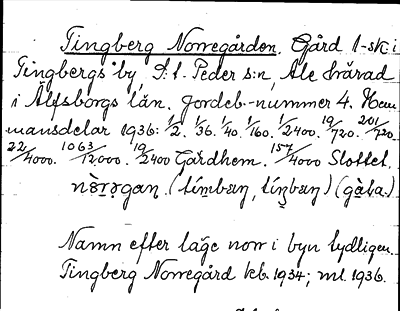 Tingberg Norregården. Gård 1-sk i
Tingbergs by, S:t Peder s:n, Ale härad
i Älfsborgs län. Jordeb.-nummer 4. Hem
mansdelar 1936: 1/2. 1/36. 1/40. 1/160. 1/2400. 19/720. 201/720
22/4000. 1063/12000. 19/2400 Gårdhem. 157/4000 Slottet.
nò̤rəgan. (tímbæŋ, tíŋbæŋ) (gàba)
Namn efter läge norr i byn tydligen.
Tingberg Norregård kb. 1934; ml. 1936.